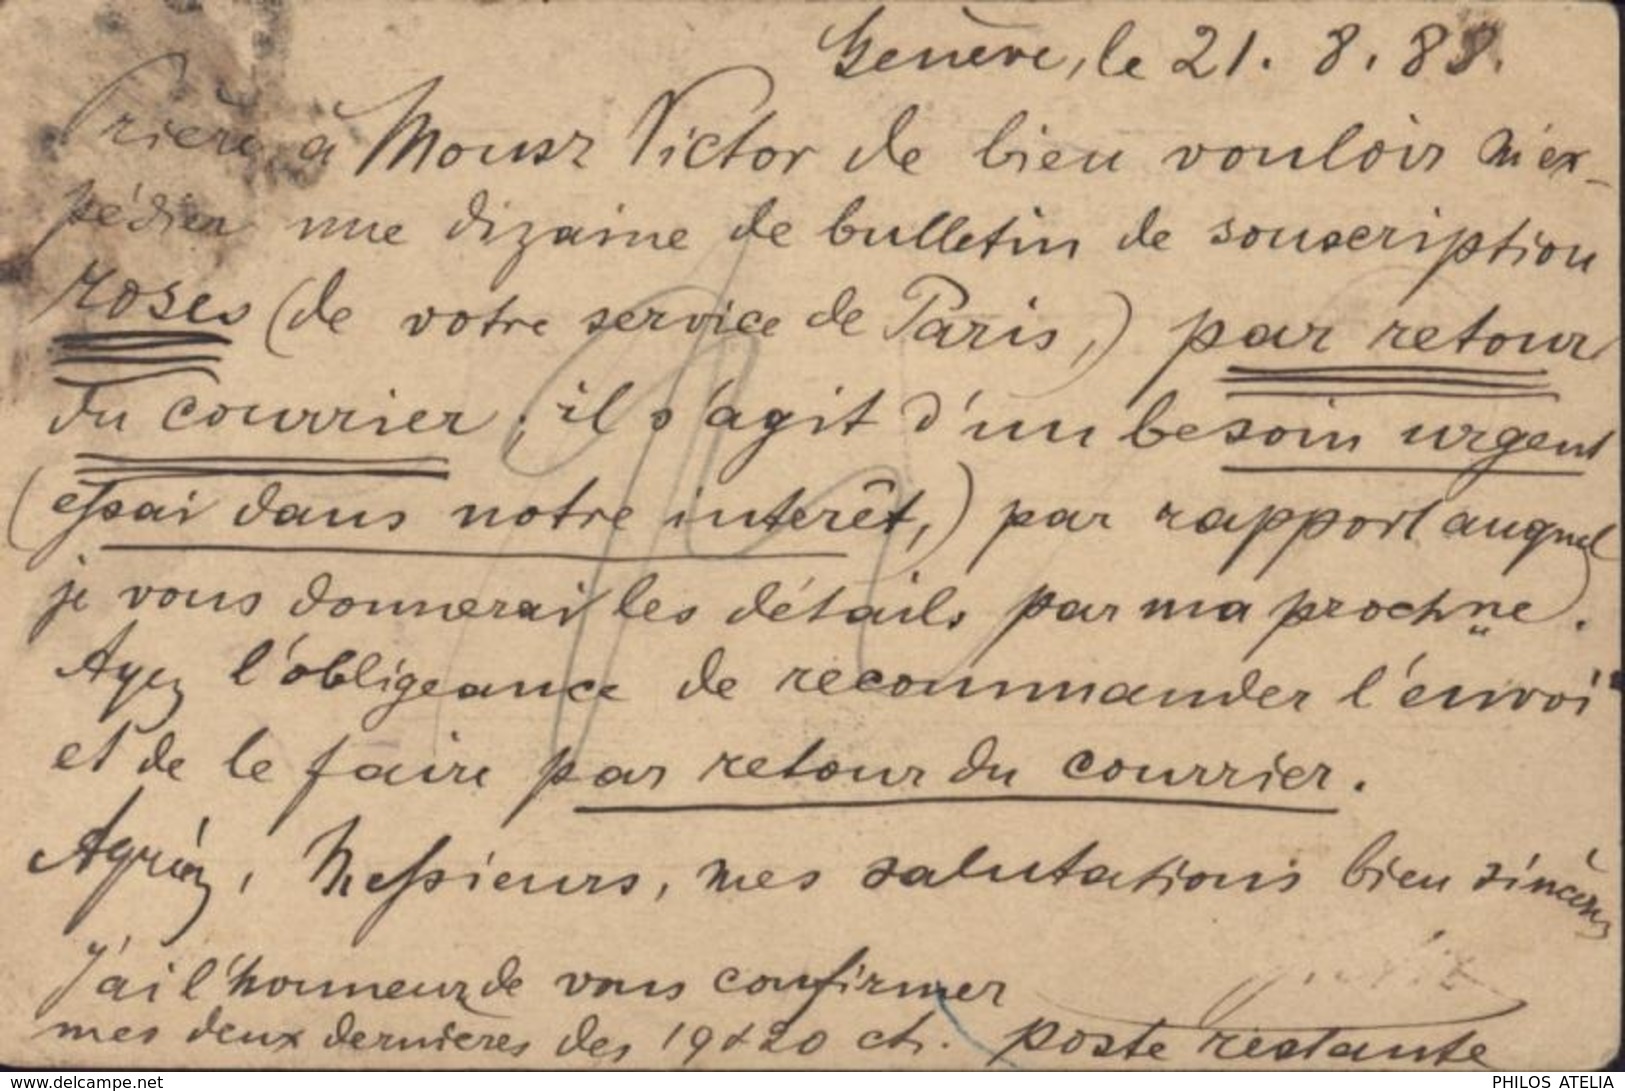 Genève, le 21. 8. 88.
Prière à Monsr Victor de bien vouloir m'ex-
pédier une dizaine de bulletin de souscription
roses (de votre service de Paris,) par retour
du courrier; il s'agit d'un besoin urgent
(essai dans notre interêt,) par rapport auquel
je vous donnerai les détails par ma prochne.
Ayez l'obligeance de recommander l'envoi
et de le faire par retour du courrier.
Agréez, Messieurs, mes salutations bien sincères
J'ai l'honneur de vous confirmer
mes deux dernières des 19 & 20 ct. poste restante
www.delcampe.net
PHILOS ATELIA